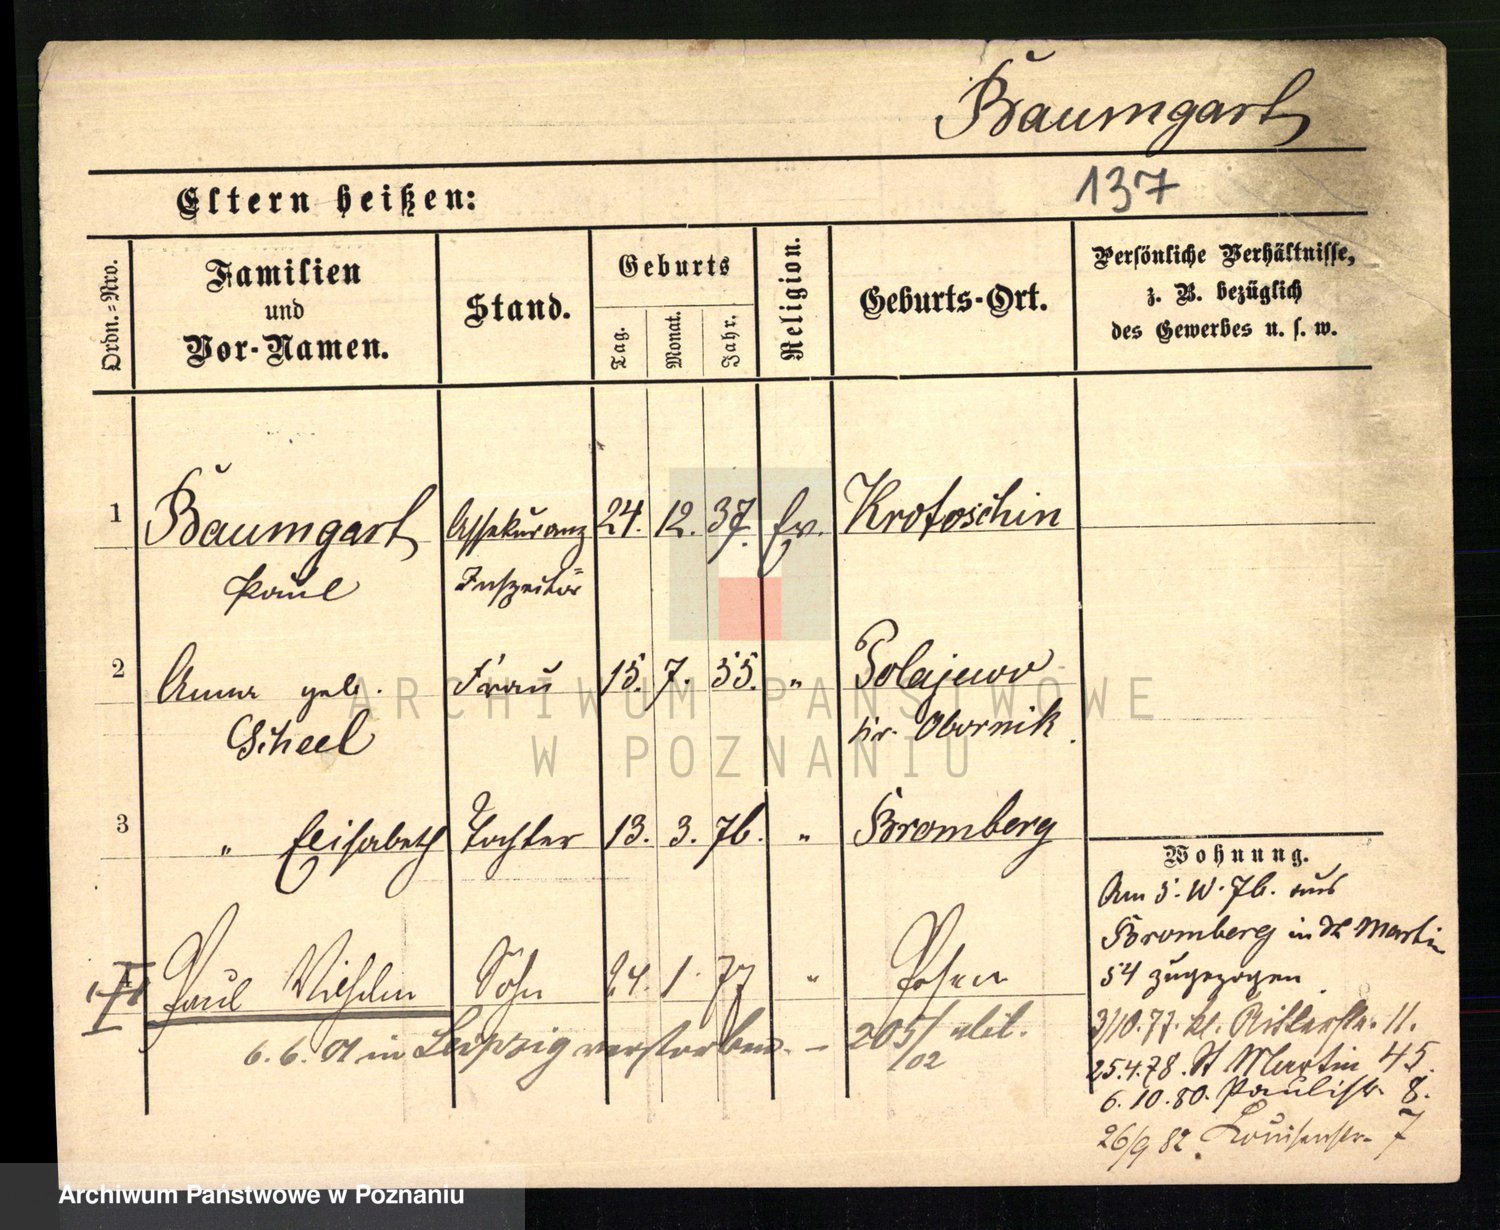 Baumgart
137
Eltern heißen:
Ordn.-Nro.
Familien
und
Vor-Namen.
Stand.
Geburts
Tag.
Monat.
Jahr.
Religion.
Geburts-Ort.
Persönliche Verhältnisse,
z. B. bezüglich
des Gewerbes u. s. w.
1 Baumgart Assekuranz 24. 12. 37. Ev. Krotoschin
Paul Inspector
2 Anna geb. Frau 15. 7. 55. " Polajewo
Scheel Kr. Obornik.
3 " Elisabeth Tochter 13. 3. 76. " Bromberg
4 Paul Wilhelm Sohn 24. 1. 77 " Posen
6. 6. 01 in Leipzig verstorben. – 205/02
Wohnung.
Am 5. 10. 76. aus
Bromberg in St Martin
54 zugezogen.
3/10.77. kl. Ritterstr. 11.
25.4.78. St Martin 45.
6. 10. 80. Paulistr. 8.
26/9 82. Louisenstr. 7
ARCHIWUM PAŃSTWOWE
W POZNANIU
Archiwum Państwowe w Poznaniu